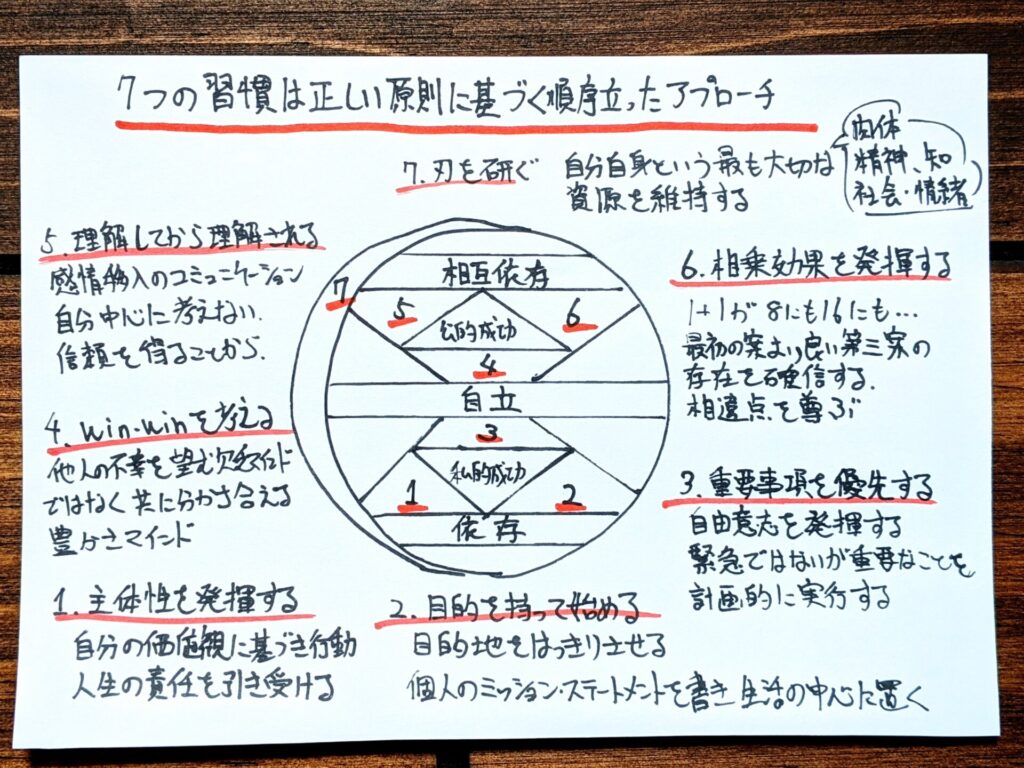 7つの習慣は正しい原則に基づく順序立ったアプローチ
7. 刃を研ぐ
自分自身という最も大切な
資源を維持する
肉体
精神、知
社会・情緒
5. 理解してから理解される
感情移入のコミュニケーション
自分中心に考えない.
信頼を得ることから.
6. 相乗効果を発揮する
1+1が8にも16にも…
最初の案より良い第三案の
存在を確信する.
相違点を尊ぶ
相互依存
7
5
公的成功
6
4
自立
3
私的成功
1
2
依存
4. win-winを考える
他人の不幸を望む欠乏マインド
ではなく共に分かち合える
豊かさマインド
3. 重要事項を優先する
自由意志を発揮する
緊急ではないが重要なことを
計画的に実行する
1. 主体性を発揮する
自分の価値観に基づき行動
人生の責任を引き受ける
2. 目的を持って始める
目的地をはっきりさせる
個人のミッション・ステートメントを書き生活の中心に置く